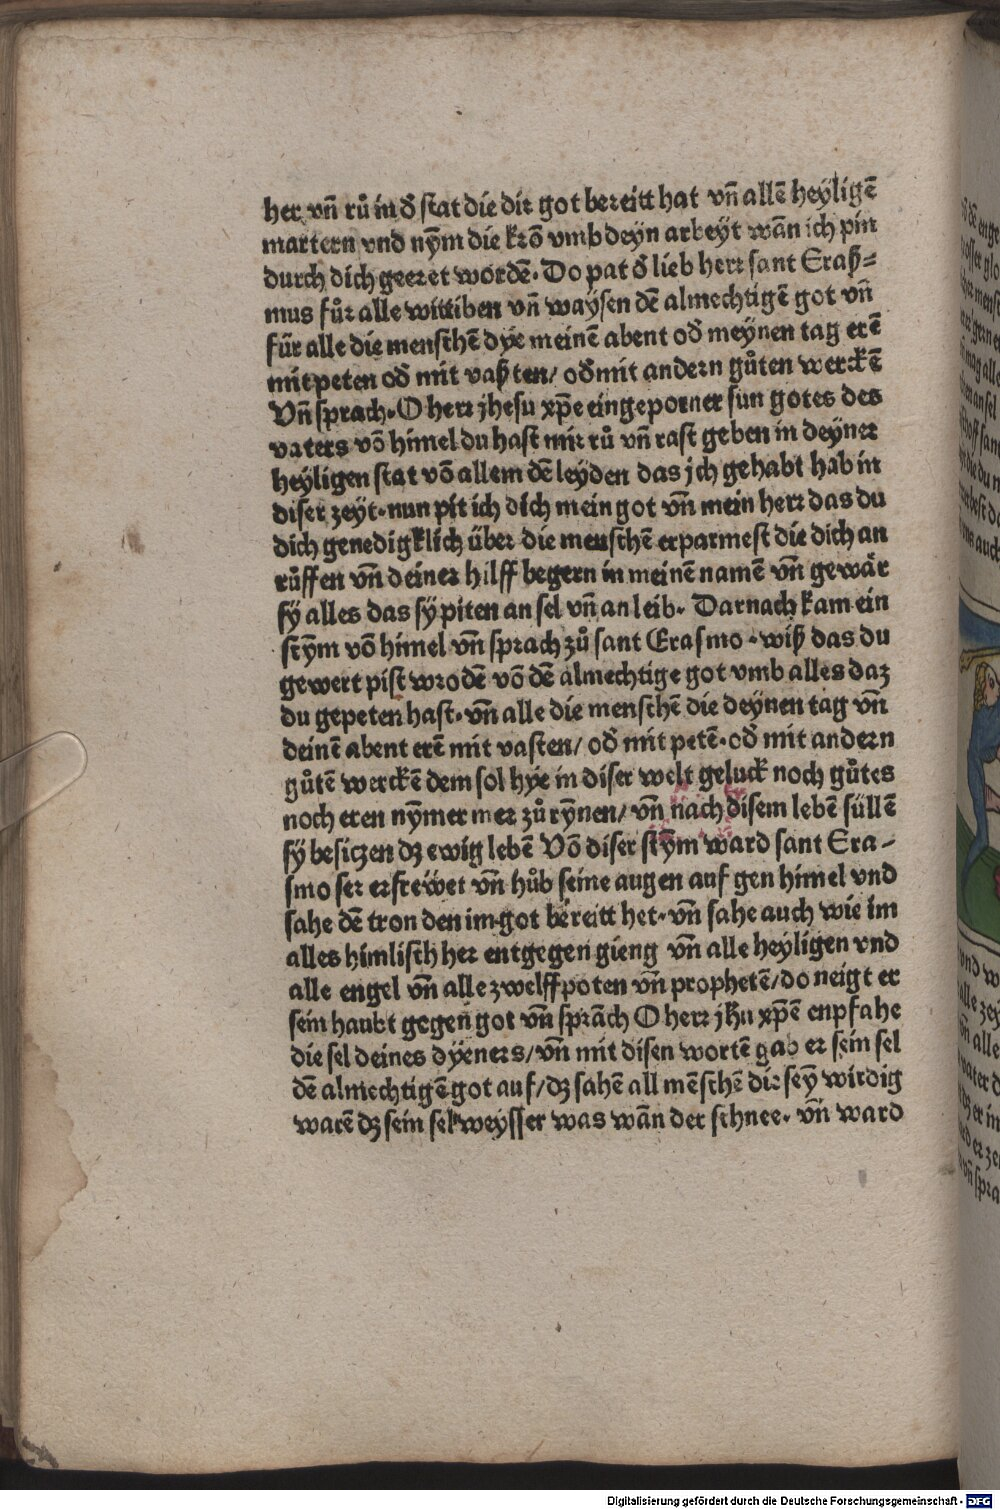 her vn̄ rů in d̕ stat die dir got bereitt hat vn̄ allē heÿligē
martern vnd nÿm die krō vmb deyn arbeÿt wān ich pin
durch dich geeret wordē. Do pat d̕ lieb herr sant Eraß=
mus fůr alle wittiben vn̄ waÿsen dē almechtigē got vn̄
für alle die menschē dÿe meinē abent od̕ meÿnen tag erē
mit peten od̕ mit vaßten/ od̕ mit andern gůten werckē
Vn̄ sprach. O herr jhesu xp̄e eingeporner sun gotes des
vaters vō himel du hast mir rů vn̄ rast geben in deÿner
heÿligen stat vō allem dē leyden das jch gehabt hab in
diser zeÿt. nun pit ich dich mein got vn̄ mein herr das du
dich genedigklich über die menschē erparmest die dich an
růffen vn̄ deiner hilff begern in meinē namē vn̄ gewär
sÿ alles das sÿ piten an sel vn̄ an leib. Darnach kam ein
stym̄ vō himel vn̄ sprach zů sant Erasmo. wiß das du
gewert pist wrodē vō dē almechtige got vmb alles daz
du gepeten hast. vn̄ alle die menschē die deÿnen tag vn̄
deinē abent erē mit vasten/ od̕ mit petē. od̕ mit andern
gůtē werckē dem sol hÿe in diser welt geluck noch gůtes
noch eren nÿmer mer zů rÿnen/ vn̄ nach disem lebē süllē
sÿ besiczen dz ewig lebē Vō diser stÿm ward sant Era-
smo ser erfrewet vn̄ hůb seine augen auf gen himel vnd
sahe dē tron den im got bereitt het. vn̄ sahe auch wie im
alles himlisch her entgegen gieng vn̄ alle heÿligen vnd
alle engel vn̄ alle zwelffpoten vn̄ prophetē/ do neigt er
sein haubt gegen got vn̄ sprāch O herr jh̄u xp̄ē enpfahe
die sel deines dÿeners/ vn̄ mit disen wortē gab er sein sel
dē almechtigē got auf/ dz sahē all mēschē die seÿ wirdig
warē dz sein sel weÿsser was wān der schnee. vn̄ ward
Digitalisierung gefördert durch die Deutsche Forschungsgemeinschaft - DFG